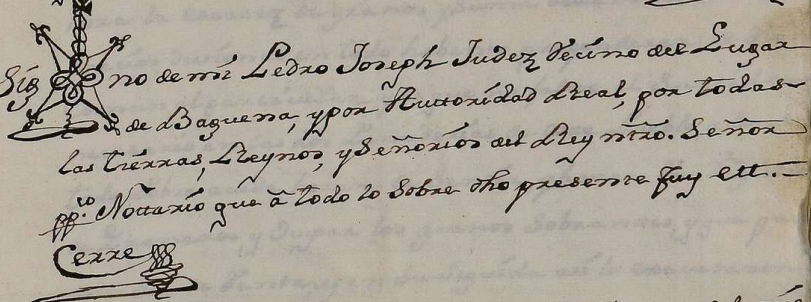 Sig no de mi Pedro Joseph Judez Vecino del Lugar
de Baguena, y por Auttoridad Real, por todas
las tierras, Reynos, y Señorios del Rey ntrõ. Señor
pp.co Nottario que â todo lo sobre dho presente fuy ett.-
Cerre